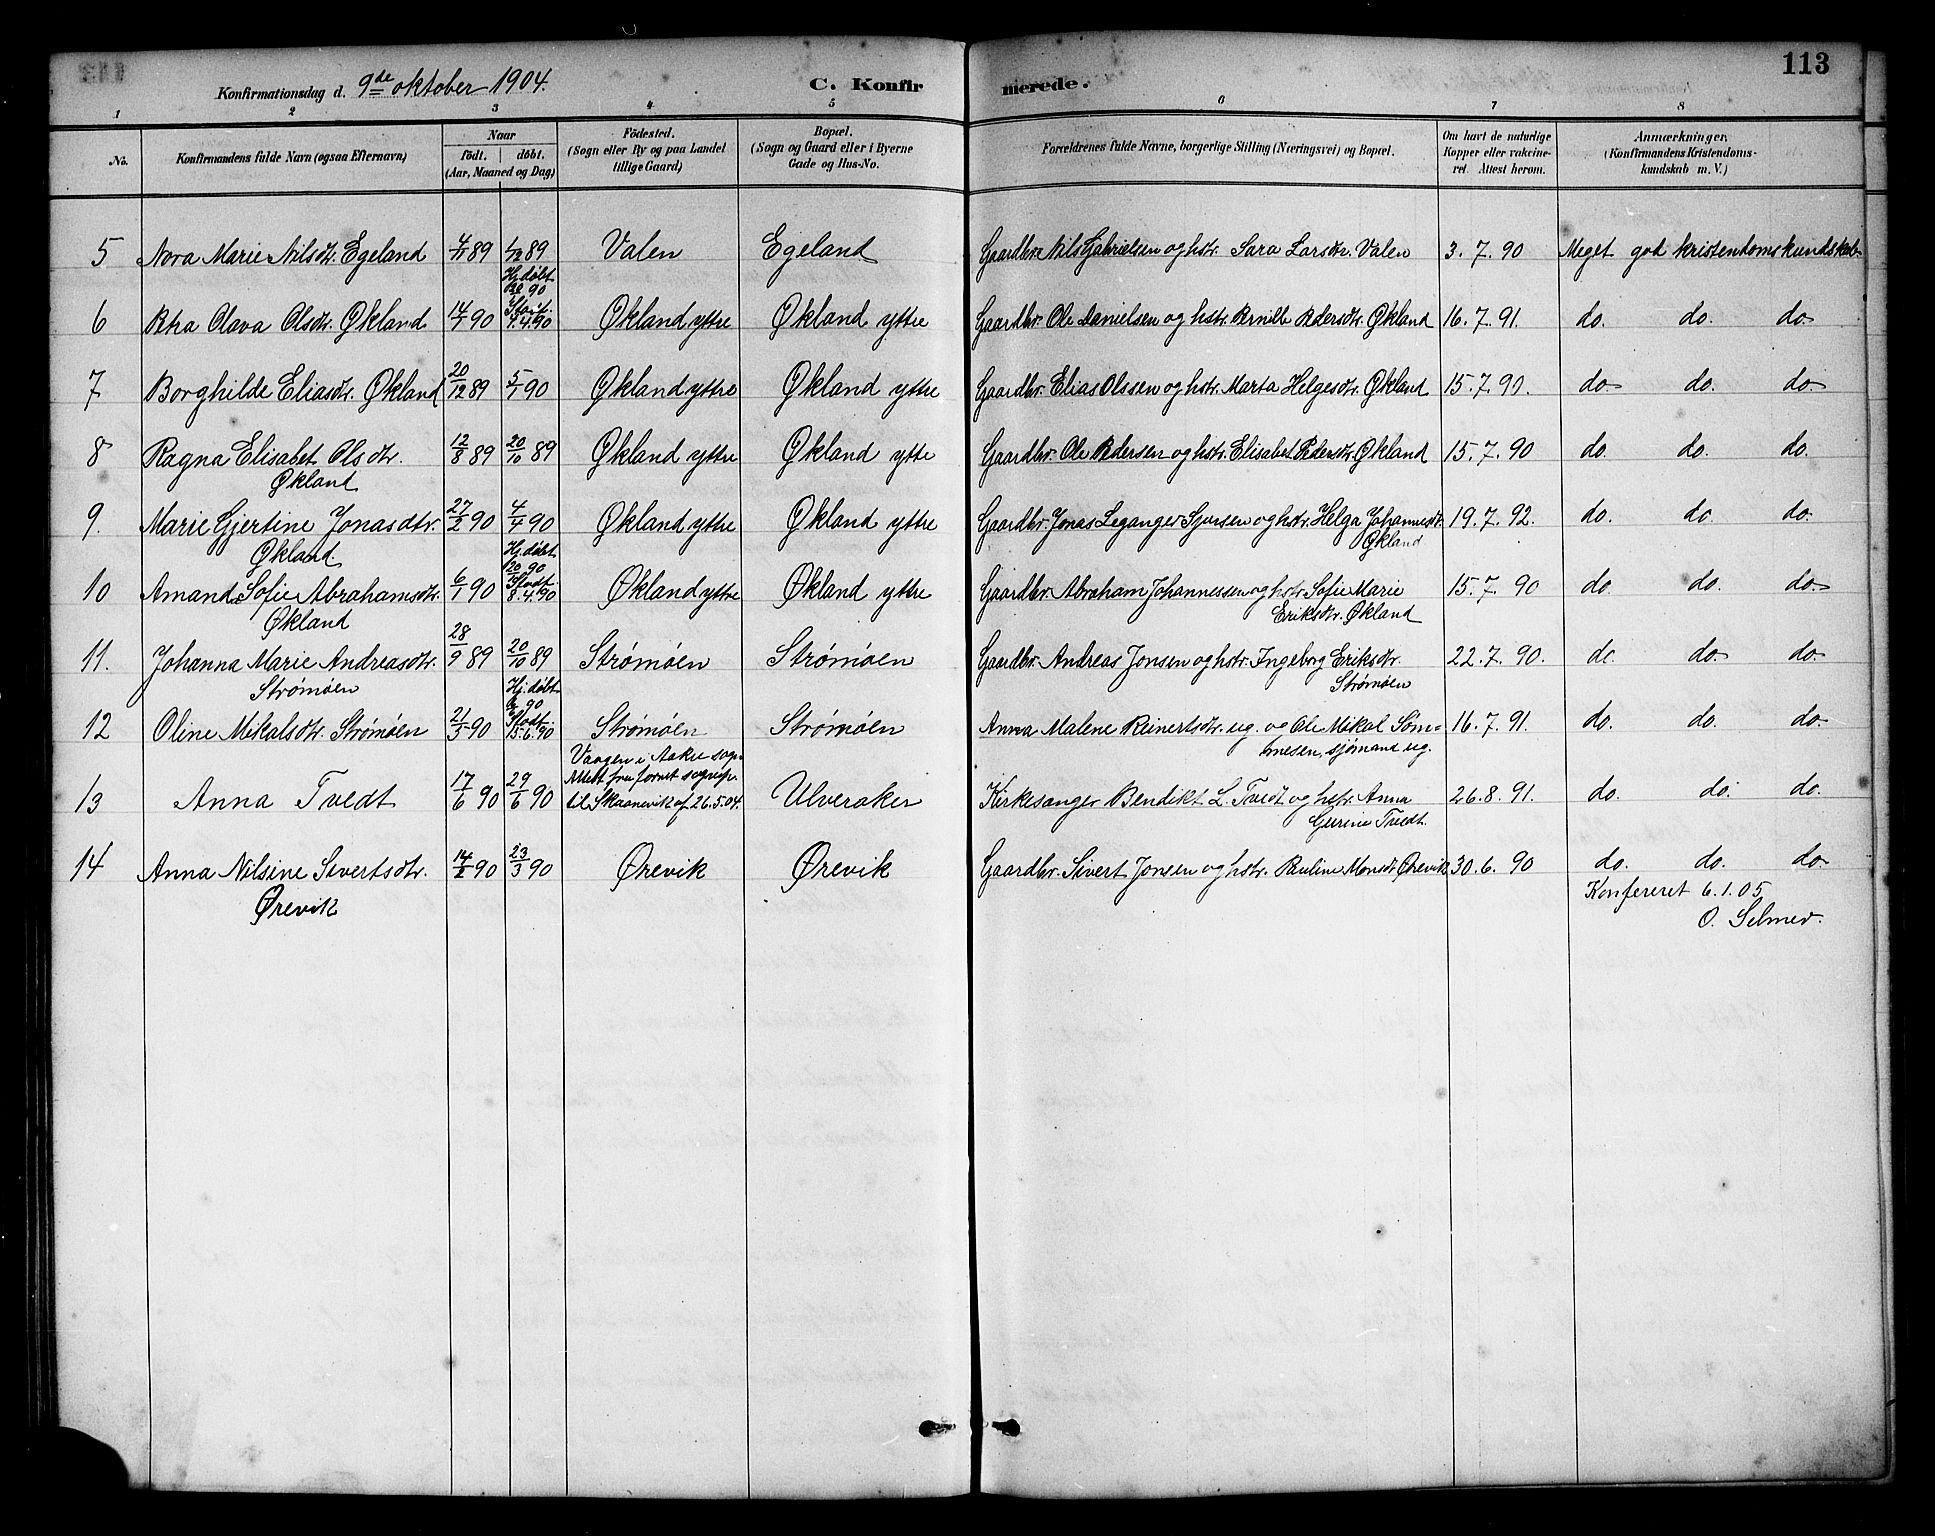 113
Konfirmationsdag d. 9de oktober 1904. C. Konfirmerede.
1 2 3 4 5 6 7 8
No. Konfirmandens fulde Navn (ogsaa Efternavn) Naar født. døbt. (Aar, Maaned og Dag) Födested. (Sogn eller By og paa Landet tillige Gaard) Bopæl. (Sogn og Gaard eller i Byerne Gade og Hus-No. Forældrenes fulde Navne, borgerlige Stilling (Næringsvei) og Bopæl. Om havt de naturlige Kopper eller vakcineret. Attest herom. Anmærkninger. (Konfirmandens Kristendomskundskab m.V.)
5 Nora Marie Nilsdtr. Egeland 89 89 Valen Egeland Gaardbr. Nils Gabrielsen og hstr. Sara Larsdtr. Valen 3. 7. 90 Meget god kristendomskundskab
Hj. døbt
90
6 Olava Olsdtr. Økland 14/1 90 4.4.90 Økland yttre Økland yttre Gaardbr. Ole Danielsen og hstr. Pernille Pedersdtr. Økland 16. 7. 91. do. do. do.
7 Borghilde Eliasdtr. Økland 20/12 89 5/1 90 Økland yttre Økland yttre Gaardbr. Elias Olssen og hstr. Marta Helgesdtr. Økland 15. 7. 90. do do. do
8 Ragna Elisabet Olsdtr. 12/8 89 20/10 89 Økland yttre Økland ytte Gaardbr. Ole Pedersen og hstr. Elisabet Pedersdtr. Økland 15. 7. 90 do. do. do.
Økland
9. Marie Gjertine Jonasdtr. 27/2 90 4/4 90 Økland yttre Økland yttre Gaardbr. Jonas Leganger Sjursen og hstr. Helga Johannesdtr. 19. 7. 92. do. do do.
Økland Hj. døbt Økland
90
10 Amanda Sofie Abrahamsdtr. 6/1 90 8.4.90 Økland yttre Økland yttre Gaardbr. Abraham Johannessen og hstr. Sofie Marie 15. 7. 90 do. do. do.
Økland Eriksdtr. Økland
11. Johanna Marie Andreasdtr. 28/9 89 20/10 89 Strømøen Strømøen Gaardbr. Andreas Jonsen og hstr. Ingeborg Eriksdtr. 22. 7. 90. do. do. do.
Strømøen Hj. døbt Strømøen
90
12 Oline Mikalsdtr. Strømøen 90 15.6.90 Strømøen Strømøen Anna Malene Reinertsdtr. ug. og Ole Mikal 16. 7. 91 do. do. do.
Vaagen i sogn sjømand ug.
13 Anna Tvedt 17/6 90 29/6 90 til Skaanevik af 26.5.04. Ulveraker Kirkesanger Bendikt L. Tvedt og hstr. Anna 26. 8. 91. do. do. do.
Gurine Tvedt.
14 Anna Nilsine Sivertsdtr. 14/2 90 23/3 90 Ørevik Ørevik Gaardbr. Sivert Jonsen og hstr. Pauline Monsdtr Ørevik 30. 6. 90 do. do. do
Ørevik Konfereret 6. 1. 05
O. Selmer.